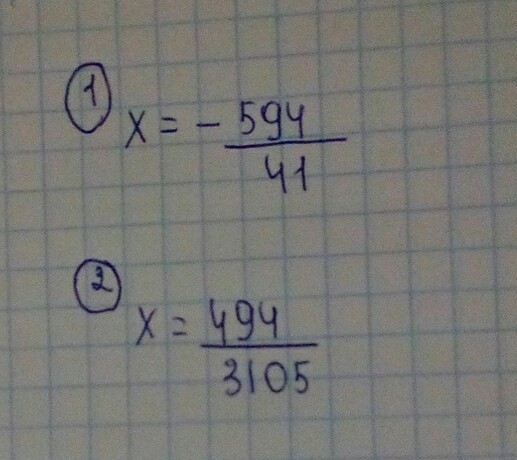 ① x = - 594
41
② x = 494
3105